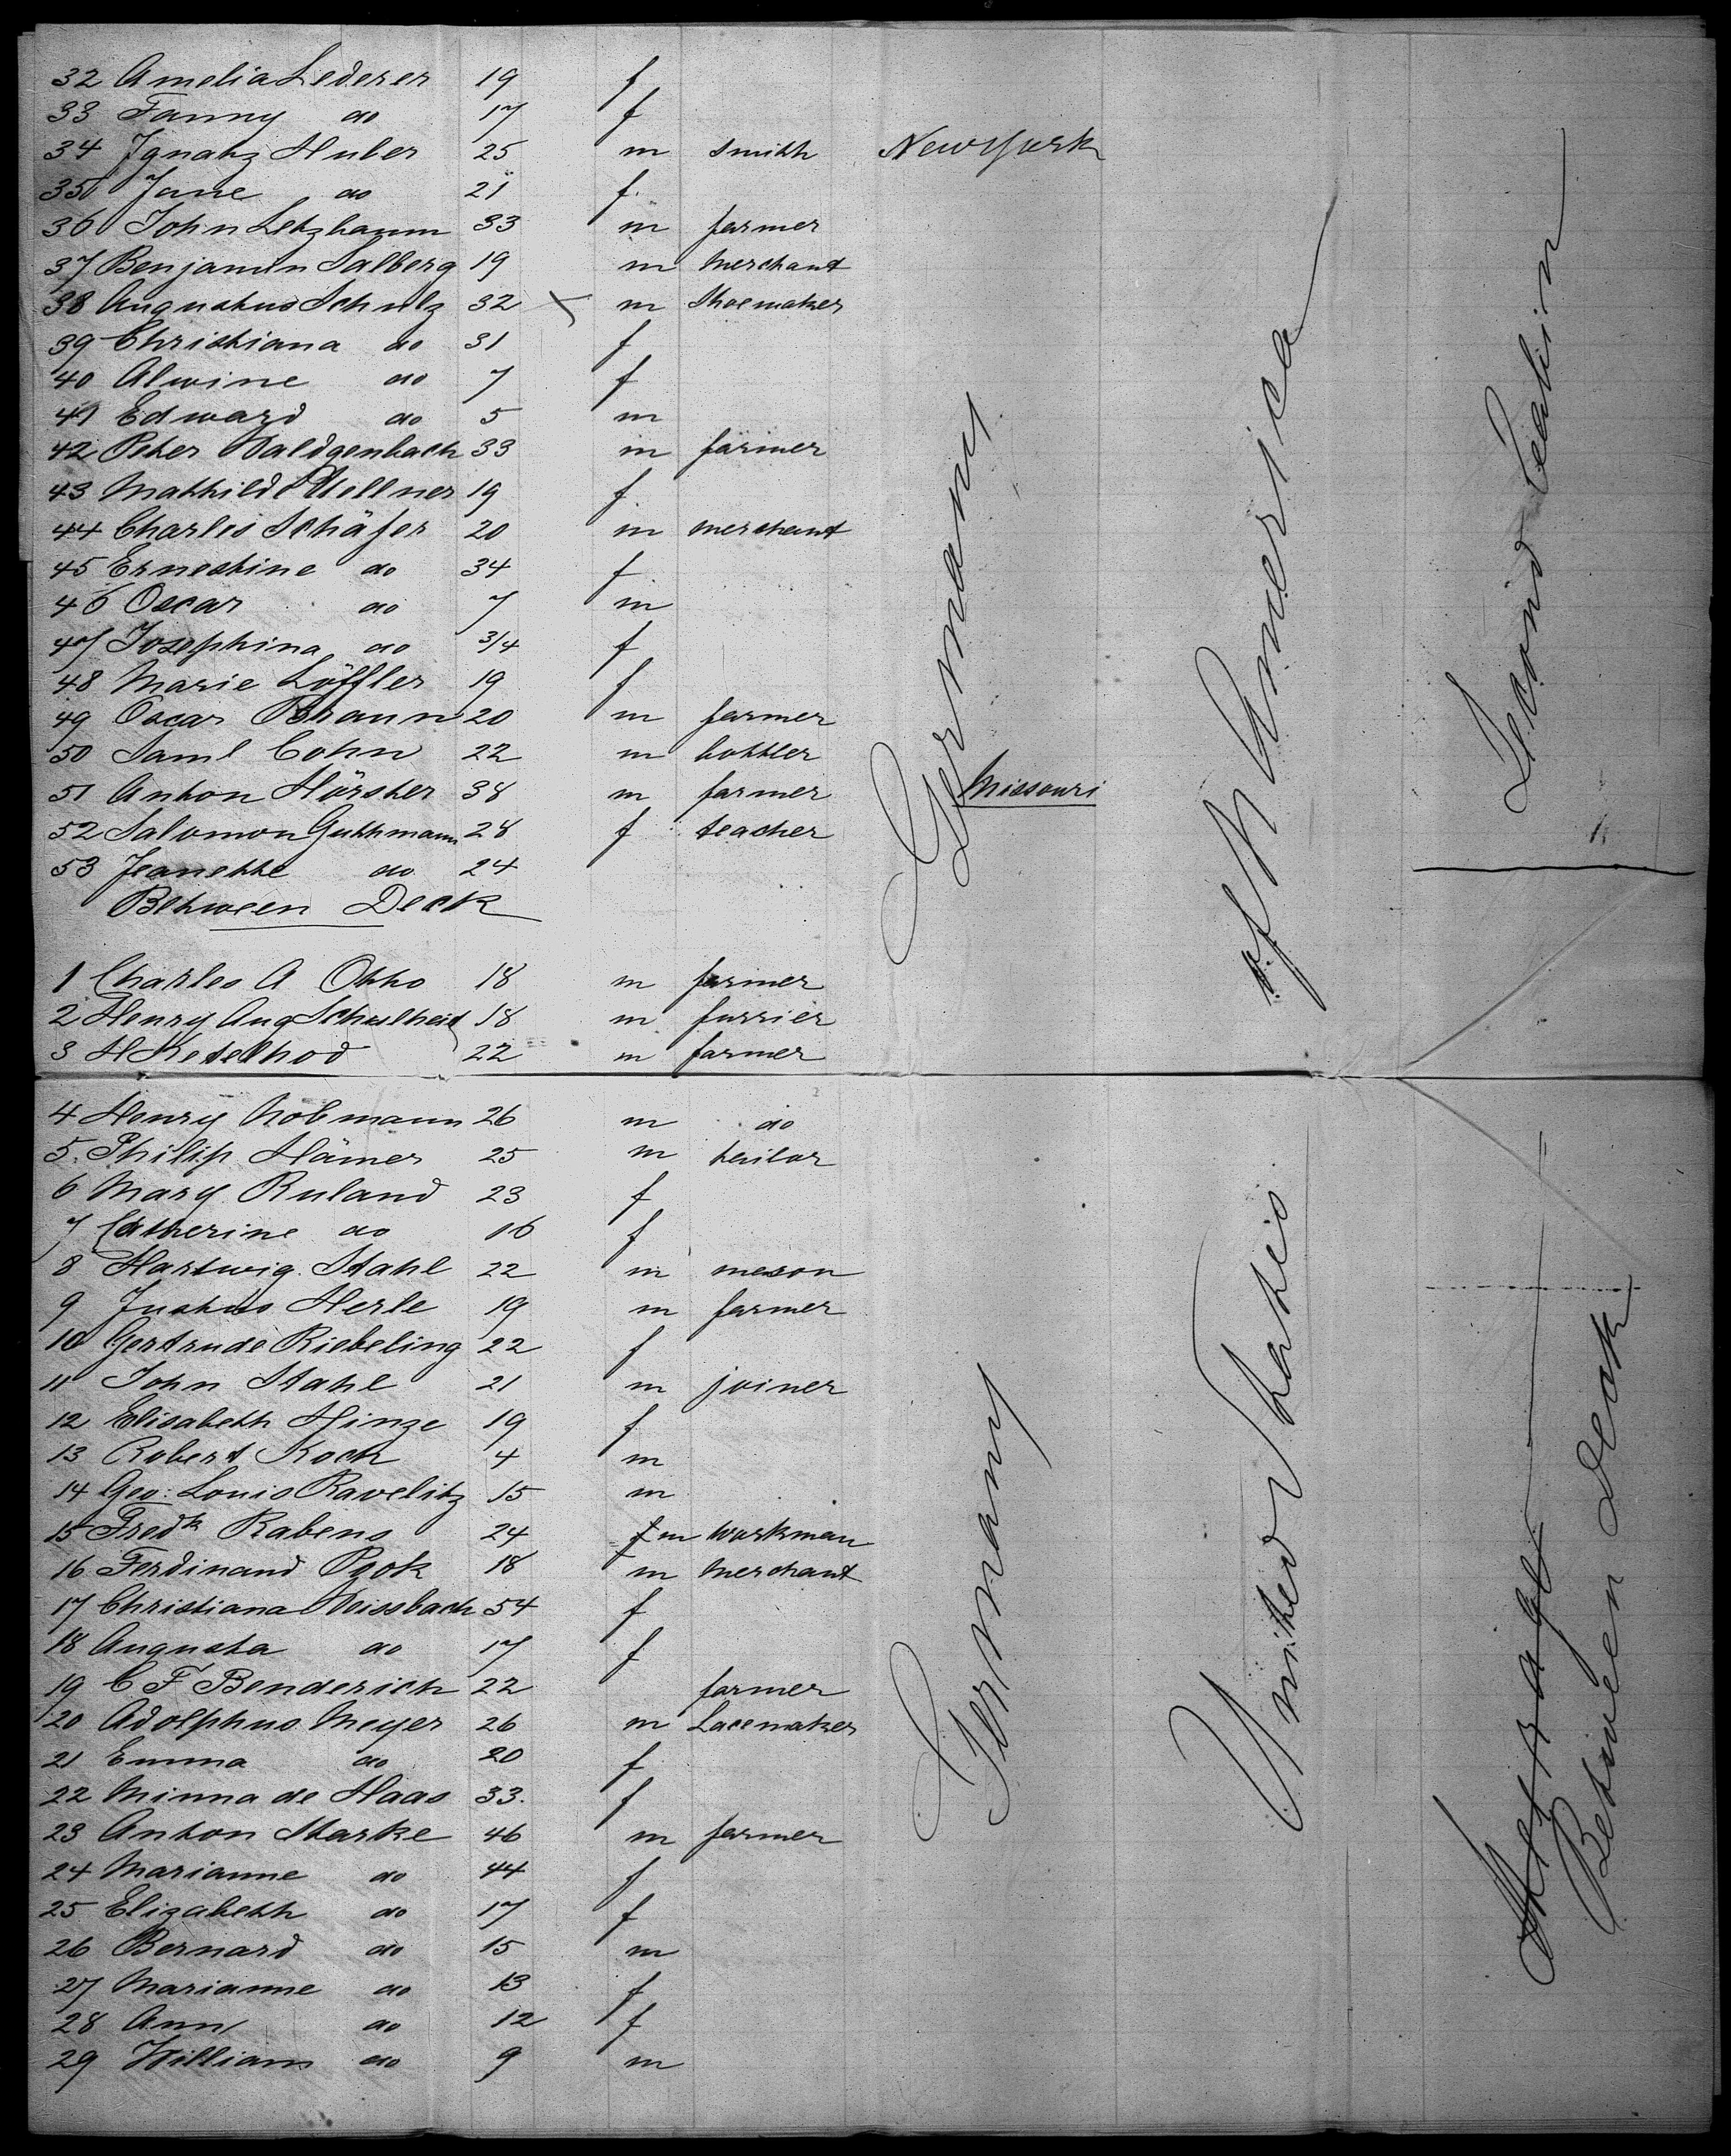 32 Amelia Lederer 19 f
33 Fanny do 17 f
34 Ignatz Huber 25 m smith New York
35 Jane do 21 f
36 John Letzbaum 33 m farmer
37 Benjamin Salberg 19 m merchant
38 Augustus Schulz 32 x m Shoemaker
39 Christiana do 31 f
40 Alwine do 7 f
41 Edward do 5 m
42 Peter Waldgenbach 33 m farmer
43 Mathilde 19 f
44 Charles Schäfer 20 m merchant
45 Ernestine do 34 f
46 Oscar do 7 m
47 Josephina do 3/4 f
48 Marie Löffler 19 f
49 Oscar Braun 20 m farmer
50 Saml Cohn 22 m
51 Anton Hörster 38 m farmer Missouri
52 Salomon Guttmann 28 f teacher
53 Jeanette do 24
Between Deck
1 Charles A Otto 18 m farmer
2 Henry Aug Schulheid 18 m furrier
3 H Ketelhod 22 m farmer
4 Henry Nobmann 26 m do
5. Philip Hämer 25 m tailor
6 Mary Ruland 23 f
7 Catherine do 16 f
8 Hartwig Stahl 22 m meson
9 Justus Herle 19 m farmer
10 Gertrude Riebeling 22 f
11 John Stahl 21 m joiner
12 Elisabeth Hinze 19 f
13 Robert Koch 4 m
14 Geo: Louis Ravelitz 15 m
15 Fredk Rabens 24 f m workman
16 Ferdinand Pook 18 m merchant
17 Christiana Weissbach 54 f
18 Augusta do 17 f
19 C F Benderich 22 farmer
20 Adolphus Meyer 26 m Lacemaker
21 Emma do 20 f
22 Minna de Haas 33. f
23 Anton Starke 46 m farmer
24 Marianne do 44 f
25 Elizabeth do 17 f
26 Bernard do 15 m
27 Marianne do 13 f
28 Ann do 12 f
29 William do 9 m
Germany
Germany
United States
of N America
Second Cabin
Steerage
Between Deck